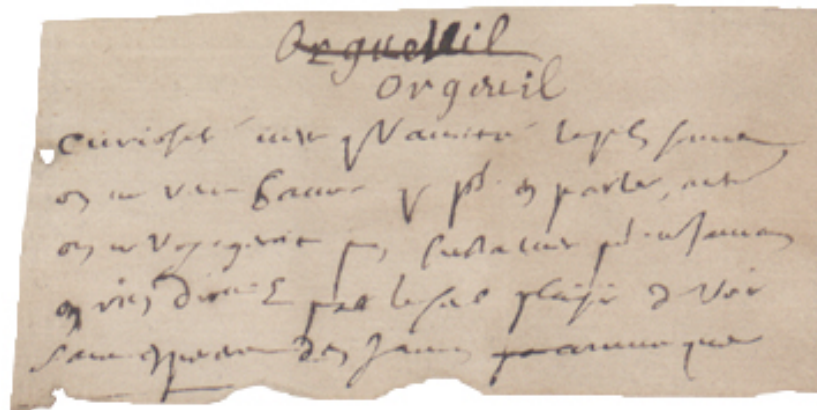 Orgueuil
Orgeuil
Curiosité n'est q Vanité le plus souvent
on ne veut savoir q pr en parler, autrement
on ne voyageroit pas sur la mer pr ne jamais
en rien dire et pour le seul plaisir de voir
sans esperance d'en jamais communiquer